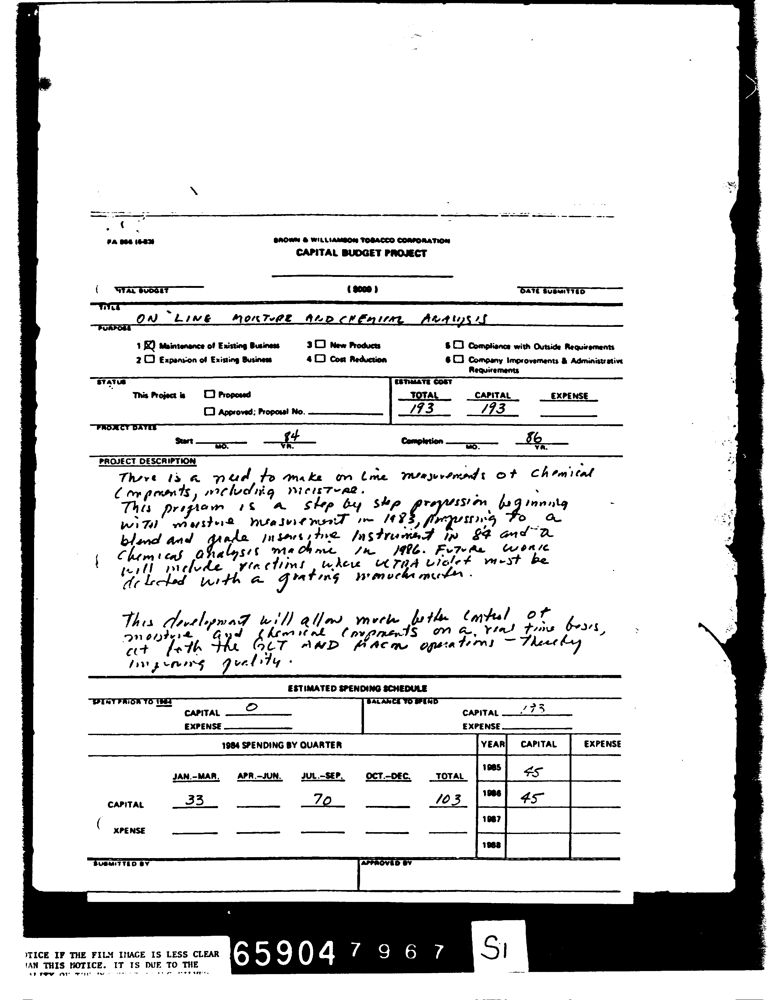 BROWN & WILLIAMSON TOBACCO CORPORATION
CAPITAL BUDGET PROJECT
ITAL BUDGET ($000) DATE SUBMITTED
TITLE
ON LINE MOISTURE AND CHEMICAL ANALYSIS
PURPOSE
1 ☒ Maintenance of Existing Business 3 ☐ New Products 5 ☐ Compliance with Outside Requirements
2 ☐ Expansion of Existing Business 4 ☐ Cost Reduction 6 ☐ Company Improvements & Administrative
Requirements
STATUS ESTIMATE COST
This Project is ☐ Proposed TOTAL CAPITAL EXPENSE
☐ Approved; Proposal No. 193 193
PROJECT DATES
Start MO. 84 YR. Completion MO. 86 YR.
PROJECT DESCRIPTION
There is a need to make on line measurements of chemical
components, including moisture.
This program is a step by step progression beginning
with moisture measurement in 1983, progressing to a
blend and grade insensitive instrument in 84 and a
chemical analysis machine in 1986. Future work
will include reactions where ultra violet must be
detected with a grating monochrometer.
This development will allow much better control of
moisture and chemical components on a real time basis,
at both the GLT AND MACON operations - Thereby
improving quality.
ESTIMATED SPENDING SCHEDULE
SPENT PRIOR TO 1984 BALANCE TO SPEND
CAPITAL 0 CAPITAL 193
EXPENSE EXPENSE
1984 SPENDING BY QUARTER YEAR CAPITAL EXPENSE
JAN.-MAR. APR.-JUN. JUL.-SEP. OCT.-DEC. TOTAL 1985 45
CAPITAL 33 70 103 1986 45
XPENSE 1987
1988
SUBMITTED BY APPROVED BY
TICE IF THE FILM IMAGE IS LESS CLEAR
AN THIS NOTICE. IT IS DUE TO THE
65904 7967 S1